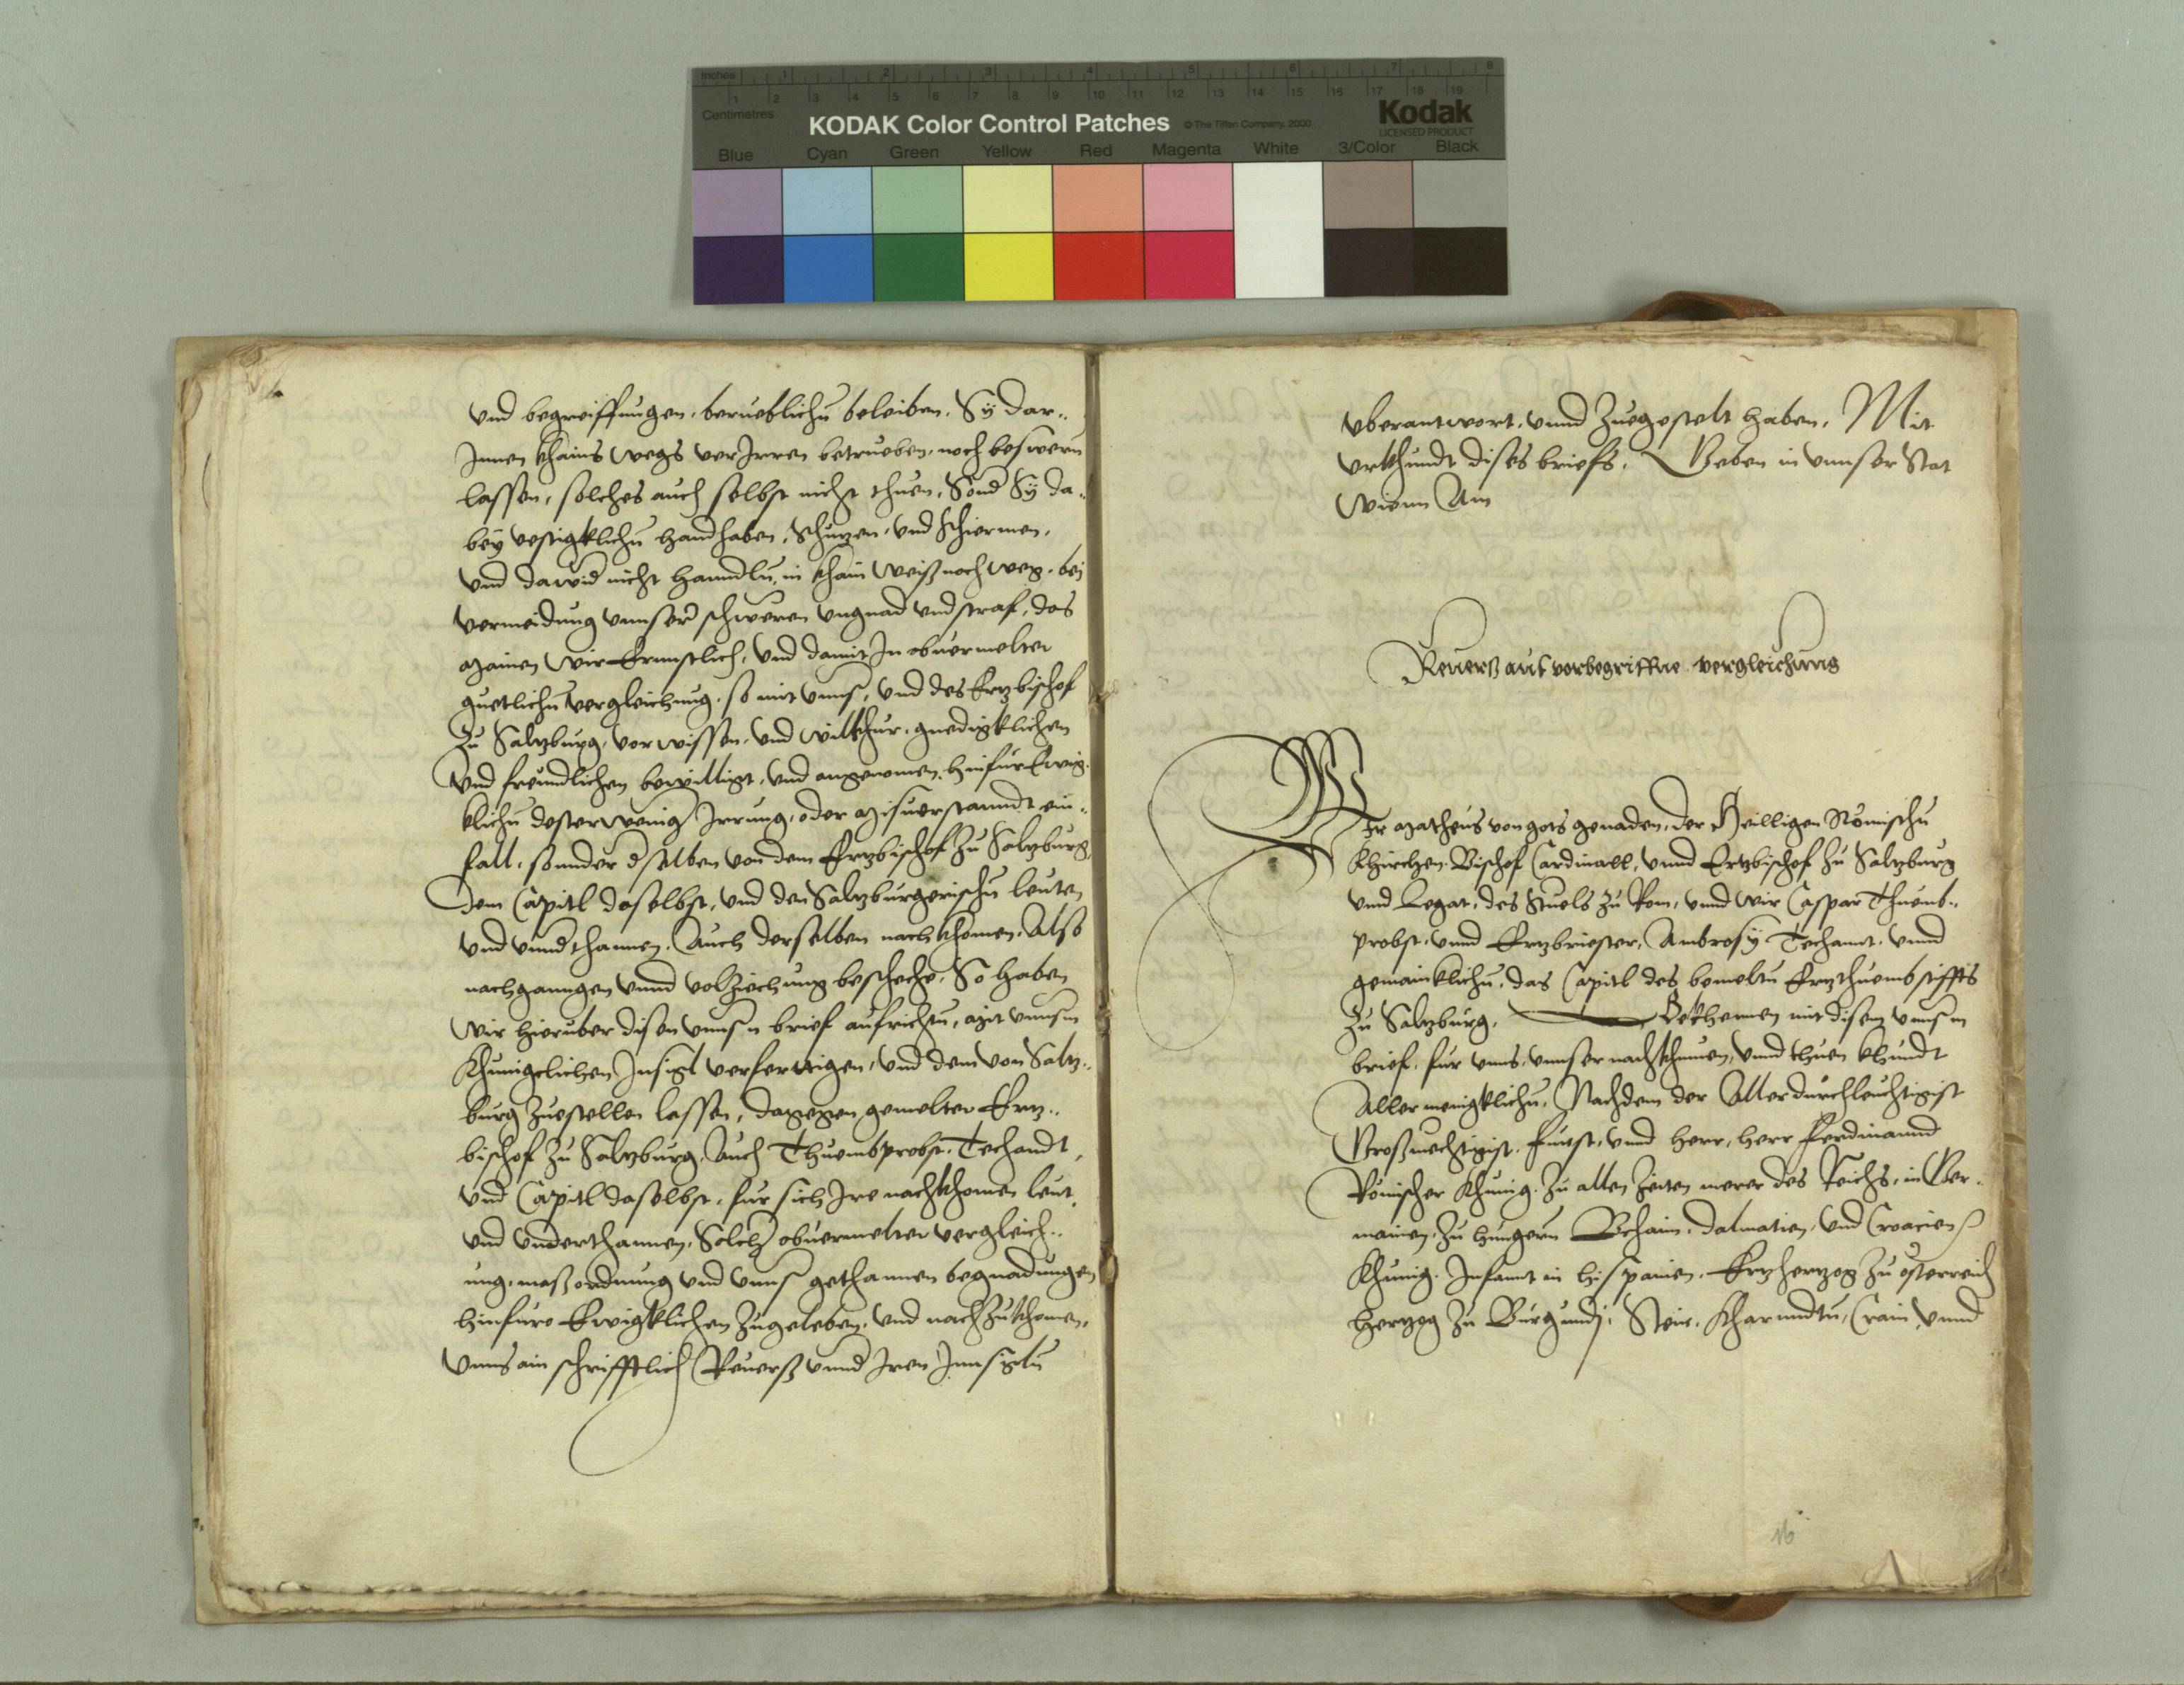 Inches 1 2 3 4 5 6 7 8
1 2 3 4 5 6 7 8 9 10 11 12 13 14 15 16 17 18 19
Centimetres
KODAK Color Control Patches © The Tiffen Company, 2000
Kodak
LICENSED PRODUCT
Blue Cyan Green Yellow Red Magenta White 3/Color Black
vnd begreiffungen, berueblichn beleiben, Sÿ dar..
Innen khains wegs verIrren betrueben, noch beswern
lassen, solches auch selbst nicht thuen, Sond Sÿ da..
beÿ vestigklichn handhaben, schutzen, vnd schiermen,
vnd dawid nicht hanndln, in khain weiß noch weg, bej
vermeidung vnnser schweren vngnad vnd straf, das
mainen wir Ernnstlich, vnd damit In obuermelter
guetlichn vergleichung, so mit vnns, vnd des Ertzbischof
zu Saltzburg, vorwissen, vnd willkhur, gnedigklichen
vnd freundlichen bewilligt, vnd angenomen, hinfur Ewig..
klichn dester wenig Irrung, oder misuerstanndt ein..
fall, sonnder dselben von dem Ertzbischof zu Saltzburg
dem Capitl daselbst, vnd den Saltzburgerischn leuten
vnd vnndthannen, Auch derselben nachkhomen, Also
nachganngen vnnd volziechung beschehe, So haben
wir hieruber disen vnnsn brief aufrichtn, mit vnnsm
Khuniglichen Insigl verferttigen, vnd dem von Saltz..
burg zuestellen lassen, dagegen gemelter Ertz..
bischof zu Saltzburg, Auch Thuembprobst, Techandt,
vnd Capitl daselbst, fur sich Ire nachkhomen leut
vnd vnderthannen, Solch obuermelter vergleich..
ung, maß ordnung vnd vnns gethannen begnadungen
hinfuro Ewigklichen zugeleben, vnd nachzukhomen,
vnns ain schrifftlich Reuerß vnnd Iren Innsigln
vberantwort, vnnd zuegestelt haben, Mit
vrkhundt dises briefs, Geben in vnnser Stat
Wienn Am
Reuerß auf vorbegriffne vergleichung
Wir Matheus von gots genaden, der Heilligen Römischn
Khirchen, Bischof Cardinall, vnnd Ertzbischof zu Saltzburg
vnnd Legat, des Stuels zu Rom, vnnd wir Caspar Thuemb..
probst, vnnd Ertzbriester, Ambrosÿ Techannt, vnnd
gemainklichn, das Capitl des bemeltn Ertzthuembstiffts
zu Saltzburg, Bekhennen mit disem vnnsm
brief, fur vnns, vnnser nachkhumen, vnnd thuen khundt
Allermenigklichn, Nachdem der Allerdurchleuchtigist
Großmechtigist, Fürst, vnnd Herr, Herr Ferdinannd
Römischer Khunig, zu allen zeiten merer des Reichs, in Ger..
manien, zu Hungern Behaim, Dalmatien, vnd Croacien
Khunig, Infannt in Hispanien, Ertzhertzog zu österreich
Hertzog zu Burgundj, Steir, Kharnndtn, Crain vnnd
16